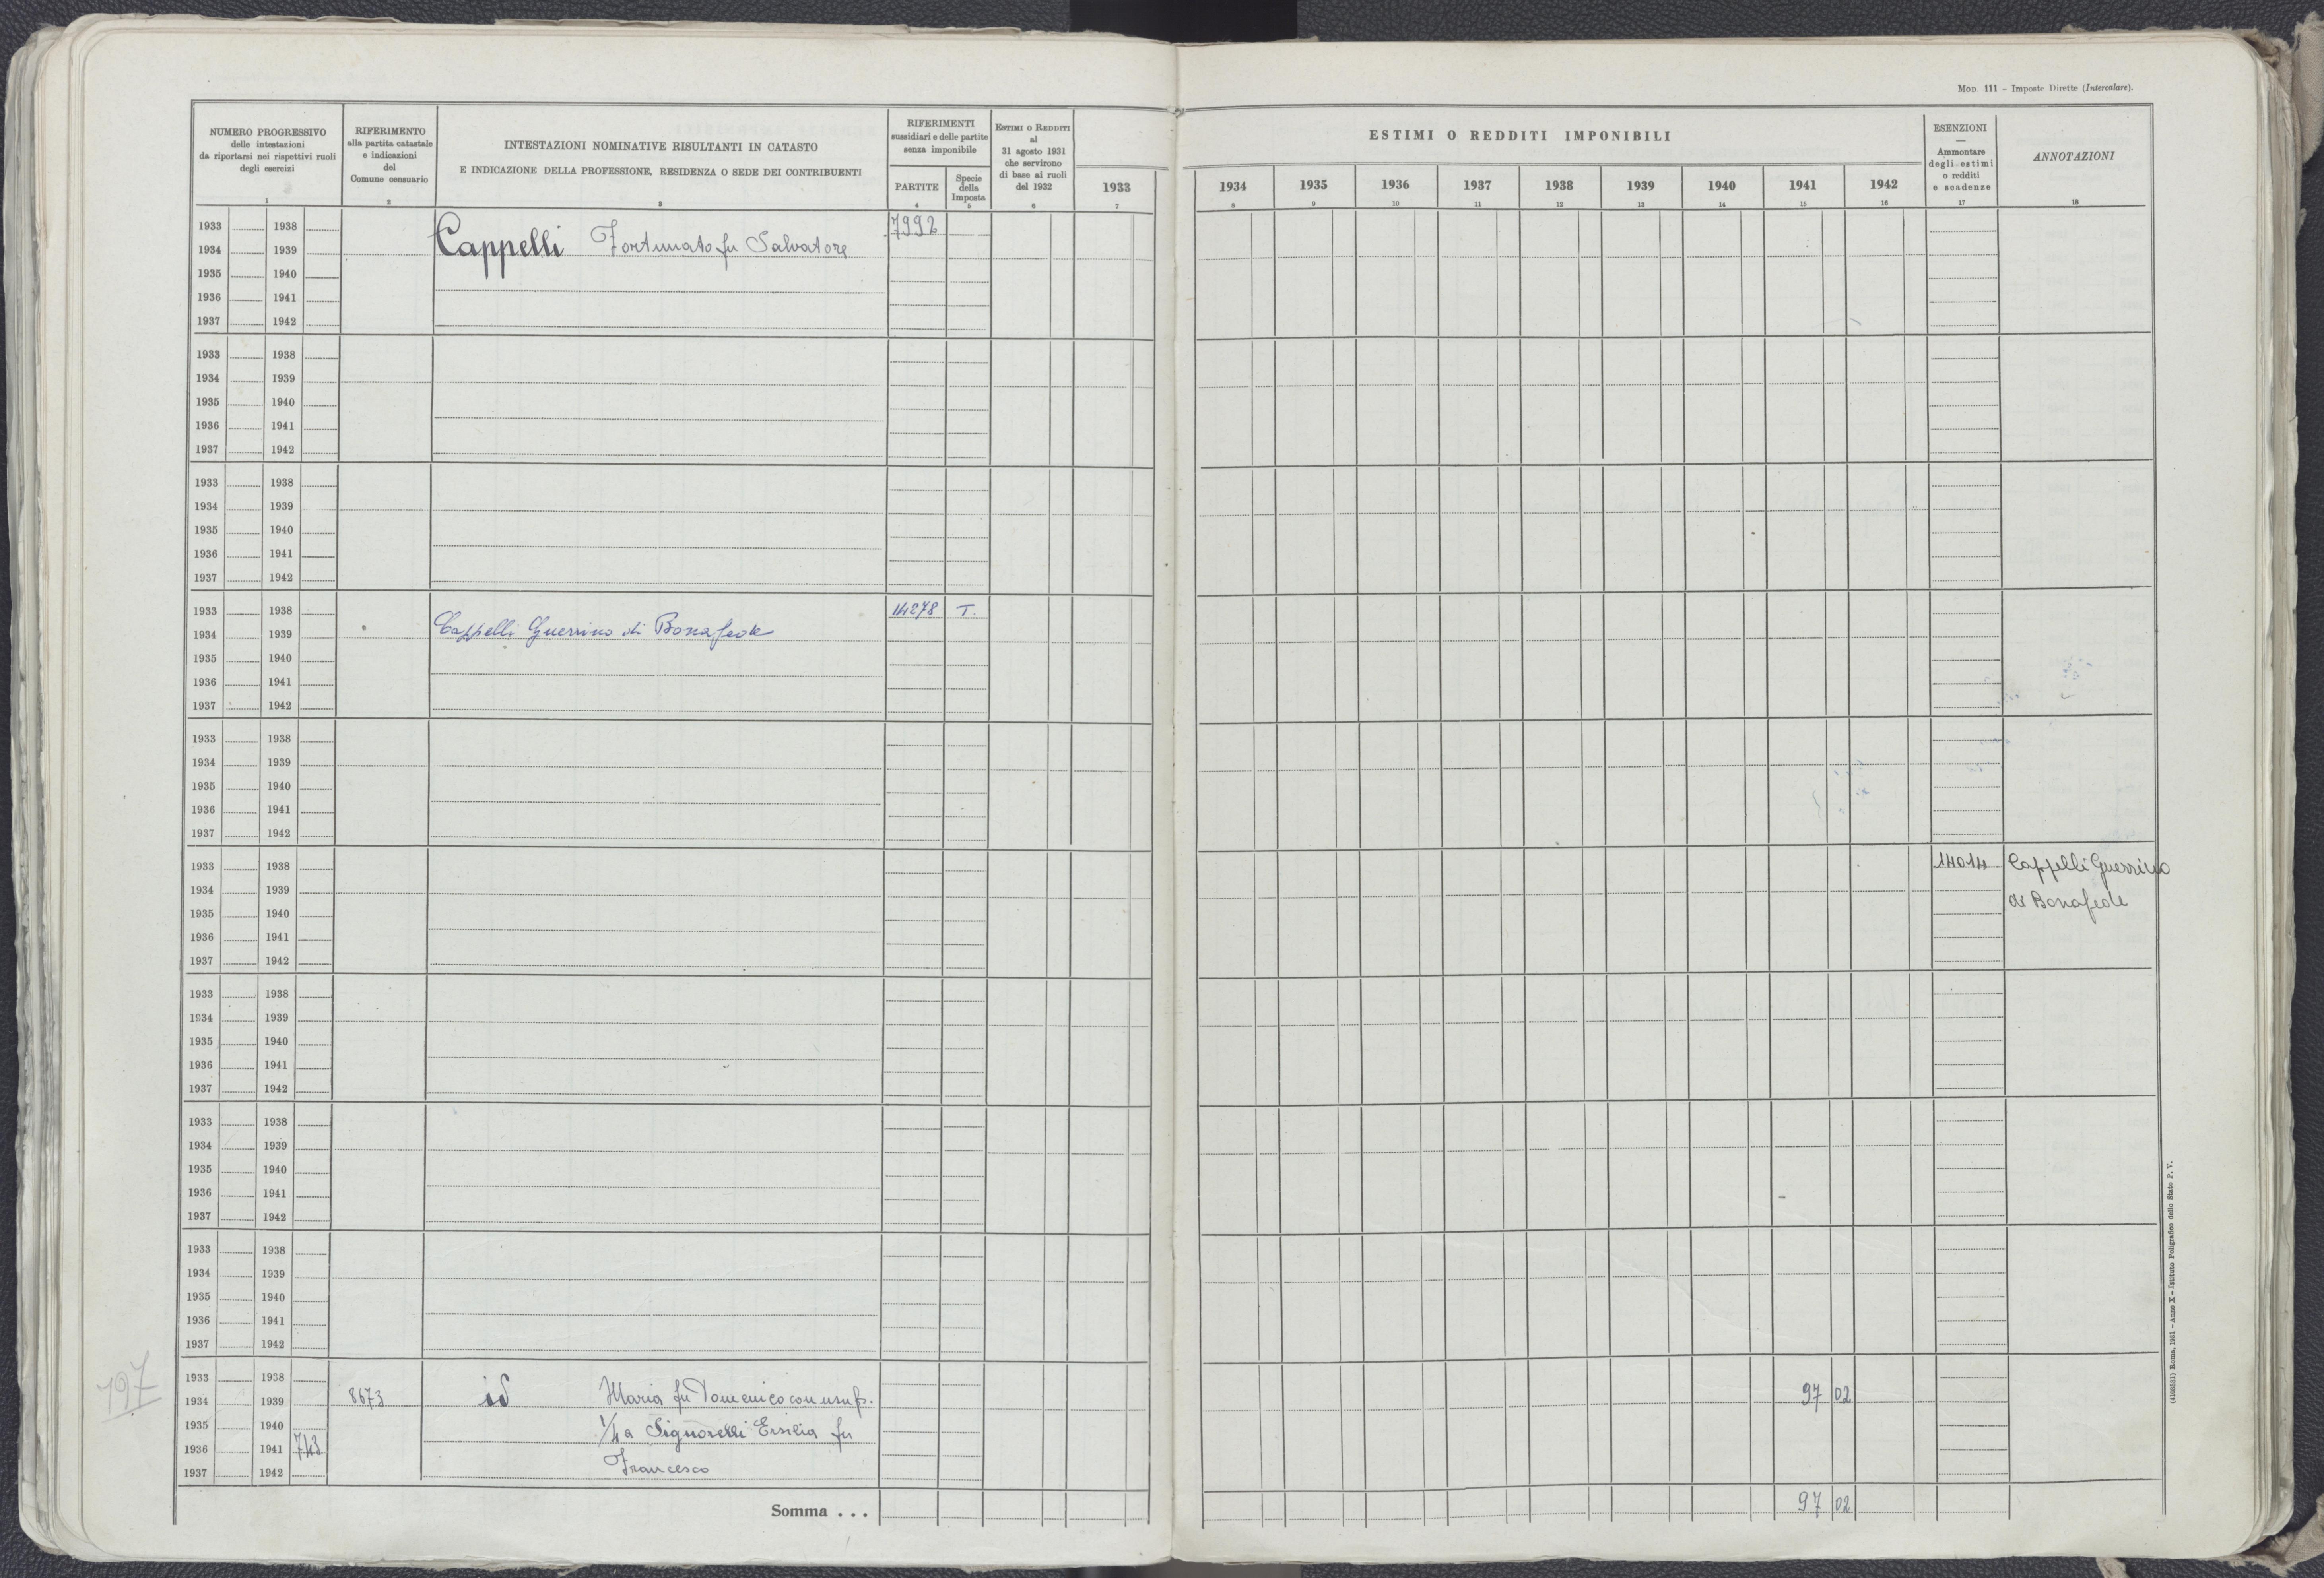 Mod. 111 – Imposte Dirette (Intercalare).
NUMERO PROGRESSIVO
delle intestazioni
da riportarsi nei rispettivi ruoli
degli esercizi
1
RIFERIMENTO
alla partita catastale
e indicazioni
del
Comune censuario
2
INTESTAZIONI NOMINATIVE RISULTANTI IN CATASTO
E INDICAZIONE DELLA PROFESSIONE, RESIDENZA O SEDE DEI CONTRIBUENTI
3
RIFERIMENTI
sussidiari e delle partite
senza imponibile
PARTITE
4
Specie
della
Imposta
5
Estimi o Redditi
al
31 agosto 1931
che servirono
di base ai ruoli
del 1932
6
1933
7
ESTIMI O REDDITI IMPONIBILI
1934 1935 1936 1937 1938 1939 1940 1941 1942
8 9 10 11 12 13 14 15 16
ESENZIONI
—
Ammontare
degli estimi
o redditi
e scadenze
17
ANNOTAZIONI
18
1933 1938 7992
1934 1939 Cappelli Fortunato fu Salvatore
1935 1940
1936 1941
1937 1942
1933 1938
1934 1939
1935 1940
1936 1941
1937 1942
1933 1938
1934 1939
1935 1940
1936 1941
1937 1942
1933 1938 14278 T.
1934 1939 Cappelli Guerrino di Bonafede
1935 1940
1936 1941
1937 1942
1933 1938
1934 1939
1935 1940
1936 1941
1937 1942
1933 1938 14014 Cappelli Guerrino
1934 1939 di Bonafede
1935 1940
1936 1941
1937 1942
1933 1938
1934 1939
1935 1940
1936 1941
1937 1942
1933 1938
1934 1939
1935 1940
1936 1941
1937 1942
1933 1938
1934 1939
1935 1940
1936 1941
1937 1942
1933 1938
1934 1939 8673 id Maria fu Domenico con usuf. 97 02
1935 1940 1/4 a Signorelli Ersilia fu
1936 1941 743
1937 1942 Francesco
Somma . . . 97 02
197
(4103551) Roma, 1931 – Anno X – Istituto Poligrafico dello Stato P. V.